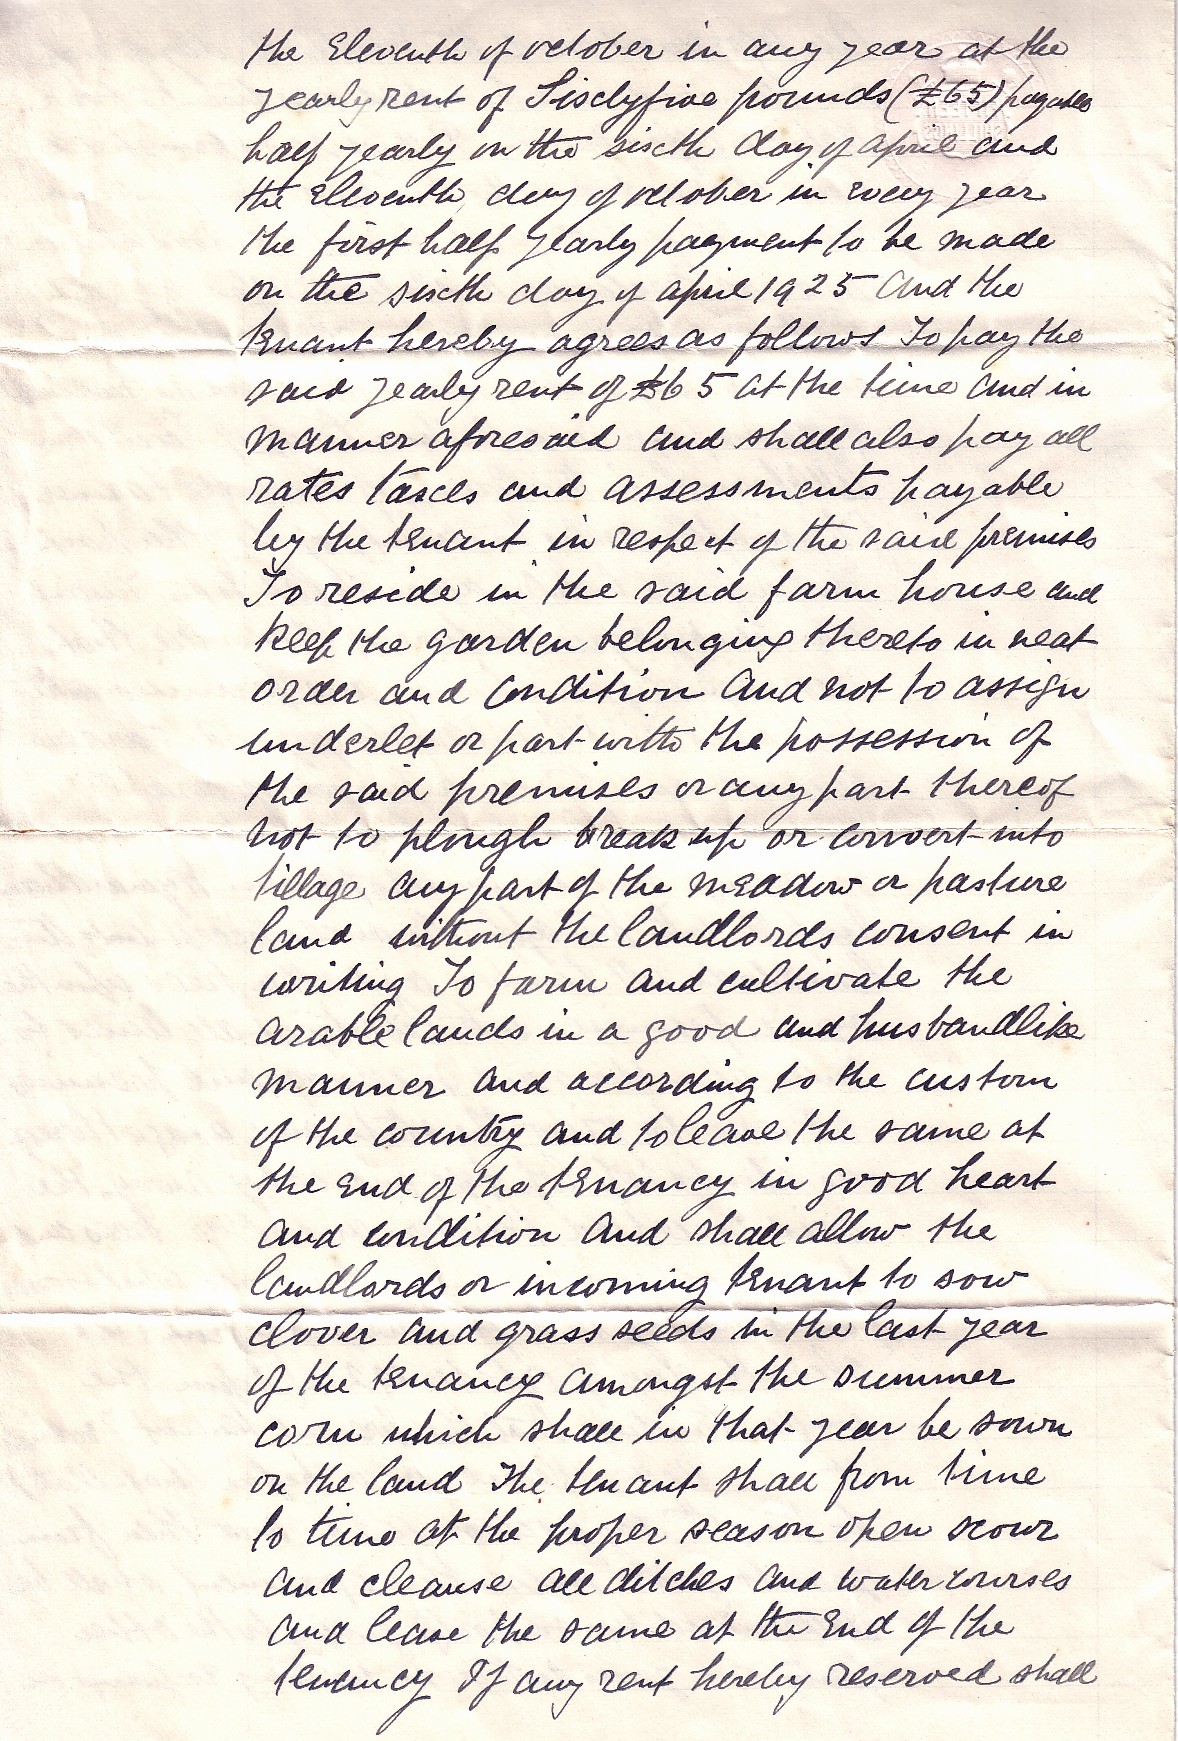 the Eleventh of october in any year at the
yearly rent of Sixtyfive pounds (£65) payable
half yearly on the sixth day of april and
the Eleventh day of october in Every year
the first half yearly payment to be made
on the sixth day of april 1925 and the
tenant hereby agrees as follows To pay the
said yearly rent of £65 at the time and in
manner aforesaid and shall also pay all
rates taxes and assessments payable
by the tenant in respect of the said premises
To reside in the said farm house and
keep the garden belonging thereto in neat
order and condition and not to assign
underlet or part with the possession of
the said premises or any part thereof
not to plough break up or convert into
tillage any part of the meadow or pasture
land without the landlords consent in
writing To farm and cultivate the
arable lands in a good and husbandlike
manner and according to the custom
of the country and to leave the same at
the end of the tenancy in good heart
and condition and shall allow the
landlords or incoming tenant to sow
clover and grass seeds in the last year
of the tenancy amongst the summer
corn which shall in that year be sown
on the land The tenant shall from time
to time at the proper season open scour
and cleanse all ditches and watercourses
and leave the same at the End of the
tenancy If any rent hereby reserved shall